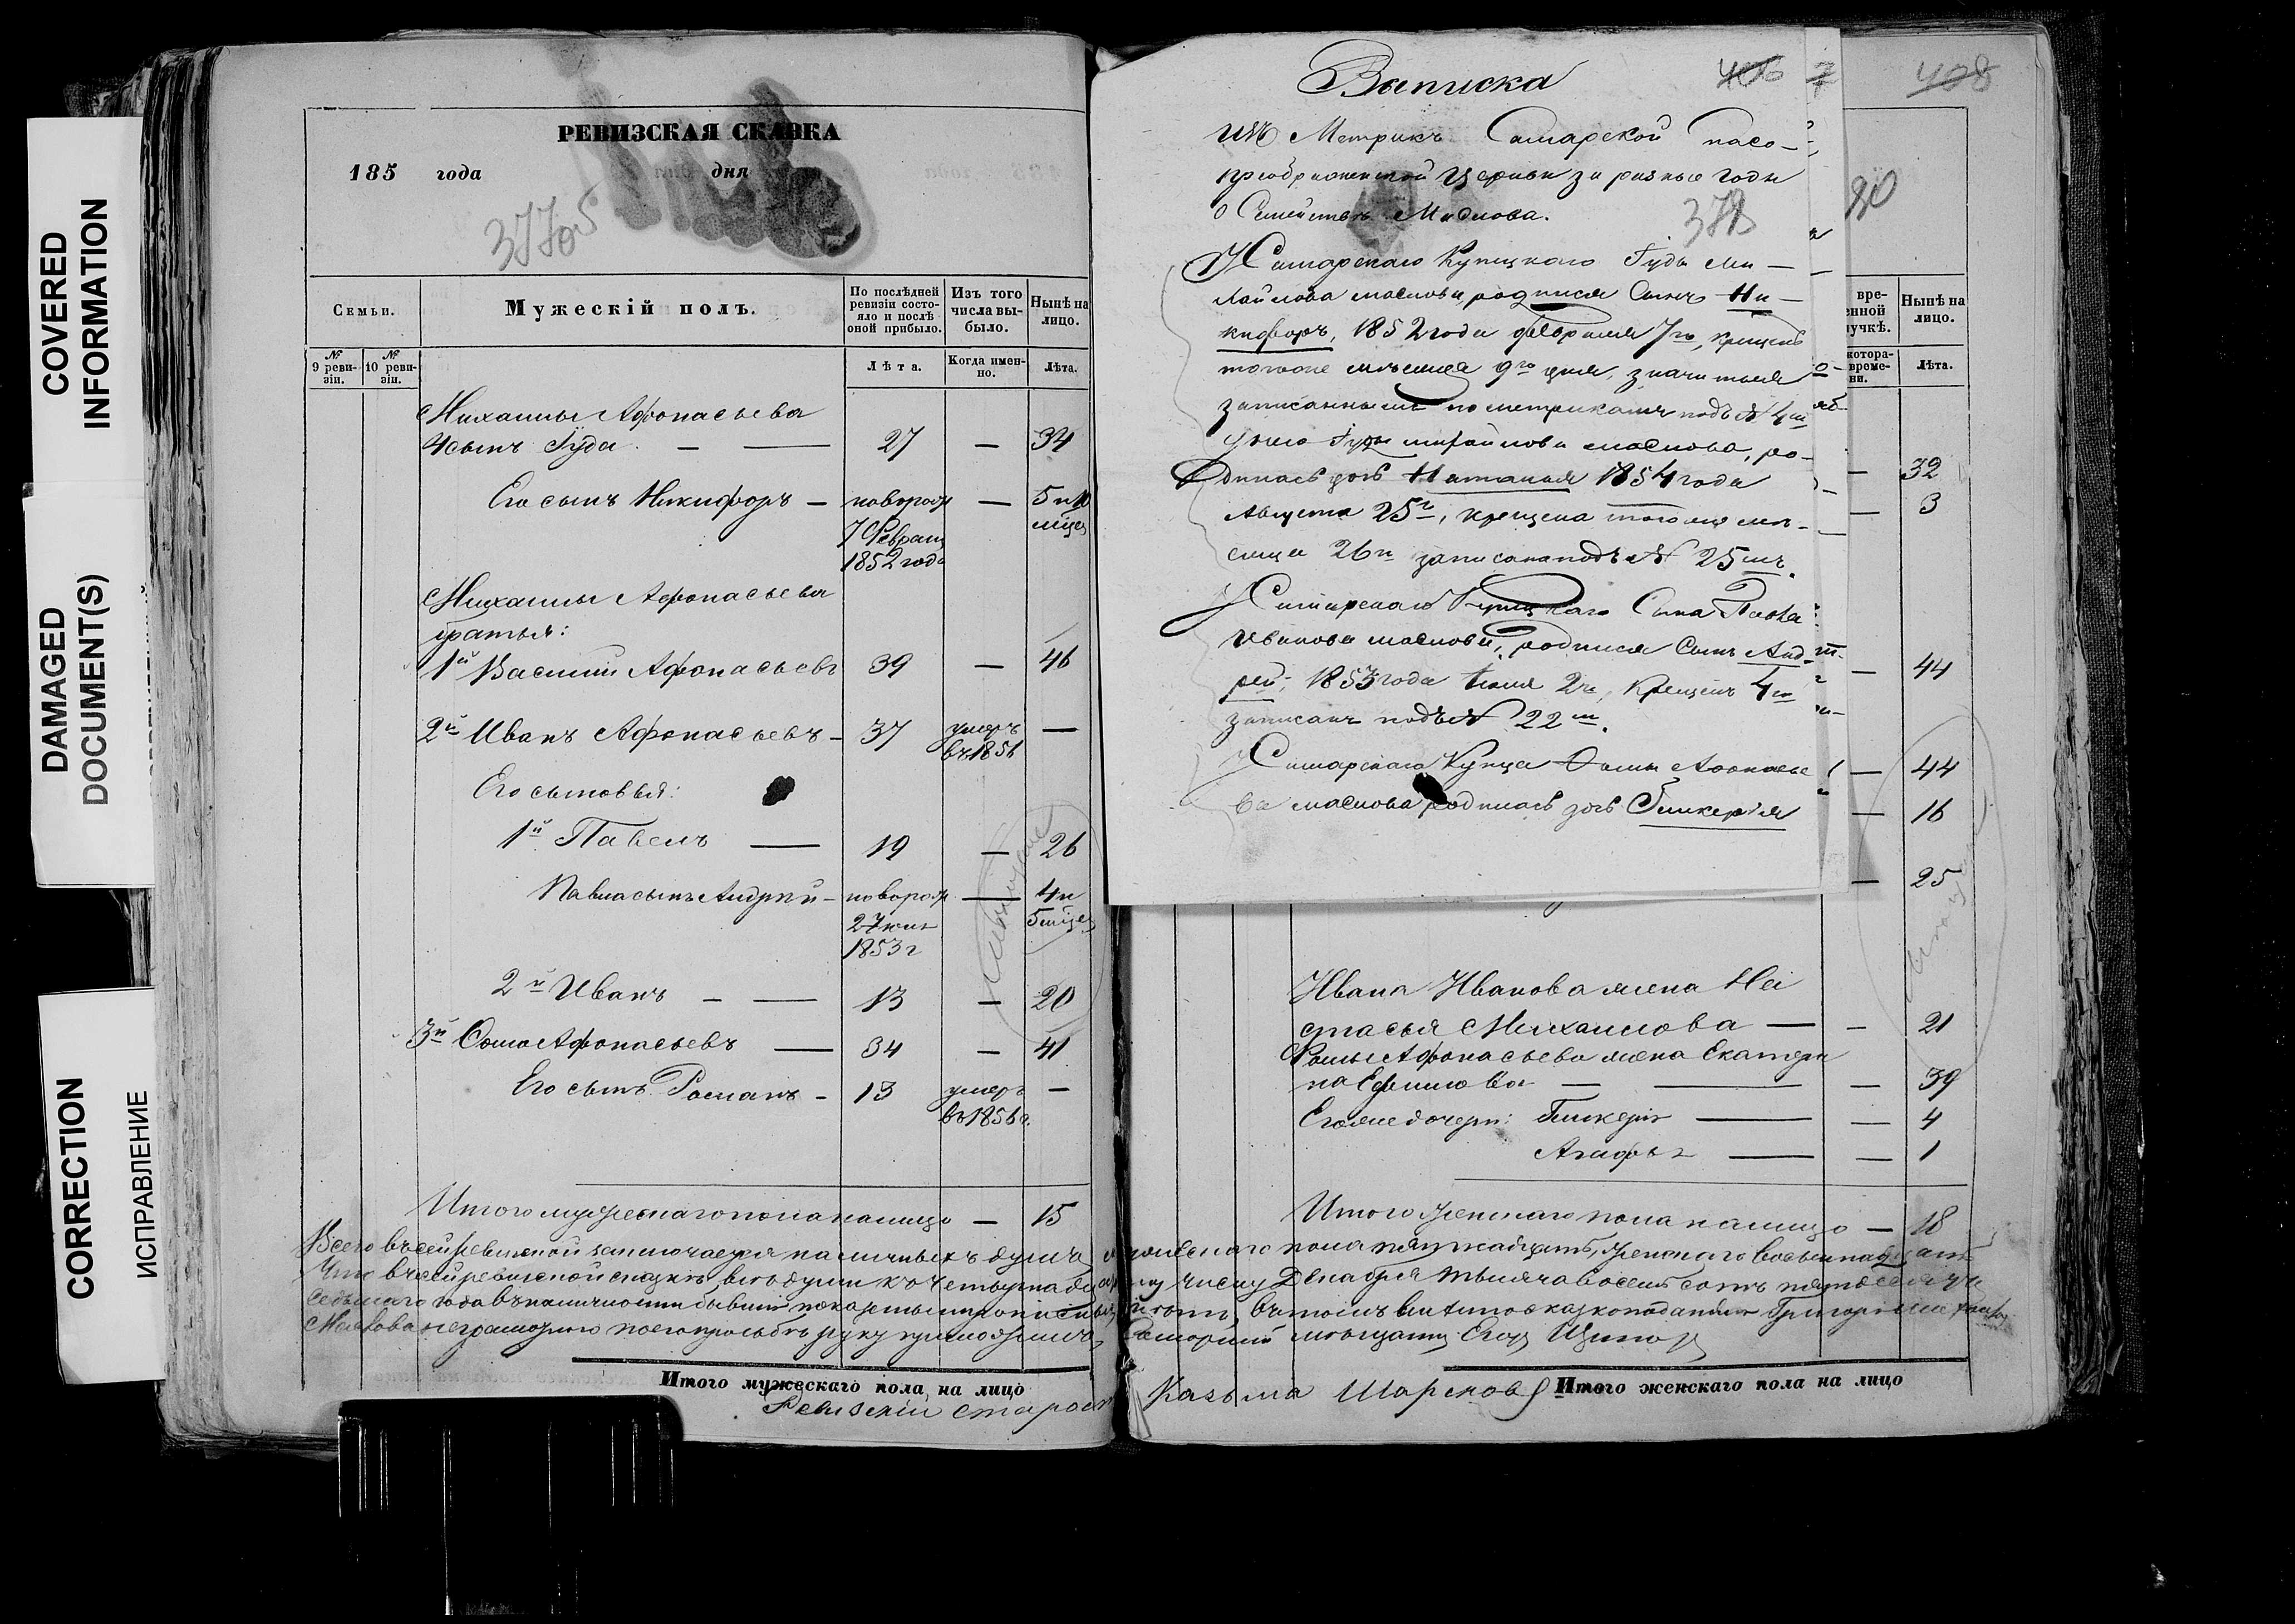 COVERED
INFORMATION
DAMAGED
DOCUMENT(S)
CORRECTION
ИСПРАВЛЕНИЕ
РЕВИЗСКАЯ СКАЗКА
185 года дня
3770 5
Семьи.
Мужескій полъ.
По послѣдней ревизіи состояло и послѣ оной прибыло.
Изъ того числа выбыло.
Нынѣ на лицо.
№ 9 ревизіи.
№ 10 ревизіи.
Лѣта.
Когда именно.
Лѣта.
Михаилы Афонасьева
4 сынъ Іуда — 27 — 34
Его сынъ Никифоръ — новорож — 5 и 10
7 Февраля мѣце
1852 года
Михаилы Афонасьева
братья:
1й Василий Афонасьевъ 39 — 46
2й Иванъ Афонасьевъ — 37 умеръ —
въ 1856
Его сыновья:
1й Павелъ — 19 — 26
Павла сынъ Андрей — новорож — 4 и
2 июня 5 мѣце
1853 г
2й Иванъ — 13 — 20
3й Фома Афонасьевъ — 34 — 41
Его сынъ Романъ — 13 умеръ —
въ 1856 г.
Итого мужескаго пола налицо — 15
Выписка
406 408
изъ Метрикъ Самарской Спасо-
преображенской Церкви за разные годы
о Семействѣ Маслова.
378
80
У Самарскаго Купецкаго Іуды Ми-
хайлова маслова, родился Сынъ Ни-
кифоръ, 1852 года февраля 7го, крещенъ
тогоже мѣсяца 9го дня, значится
записаннымъ по метрикамъ подъ № 4м
у него Іуды михайлова маслова, ро-
дилась дочь Наталья 1854 года
Августа 25го, крещена тогоже мѣ-
сяца 26го записана подъ № 25мъ.
У Самарскаго Купецкаго Сына Павла
Иванова маслова, родился Сынъ Анд-
рей, 1853 года Июня 2го, крещенъ 4го
записанъ подъ № 22м.
У Самарскаго Купца Фомы Афонасье
ва маслова родилась дочь Гликерія
Нынѣ на лицо.
Лѣта.
— 32
— 3
— 44
— 44
— 16
— 25
Ивана Иванова жена На
стасья Михаилова — — 21
Фомы Афонасьева жена Екатери
на Ефимова — — 39
Его же дочери: Гликерія — — 4
Агафья — — 1
Итого женскаго пола налицо — 18
Всего въ сей ревизской заключается наличныхъ душъ мужескаго пола пятнадцать, женскаго восемнадцать
Что въ сей ревизской сказкѣ всѣ души къ четырнадцатому числу Декабря тысяча восемь сотъ пятьдесятъ
седьмаго года въ наличности бывшие показаны и прописныхъ нетъ, въ томъ
Маслова неграмотнаго по его прозьбѣ руку приложилъ Самарский мѣщанинъ Егоръ
Итого мужескаго пола на лицо
Итого женскаго пола на лицо
Ревизский староста Казьма Шарсковъ